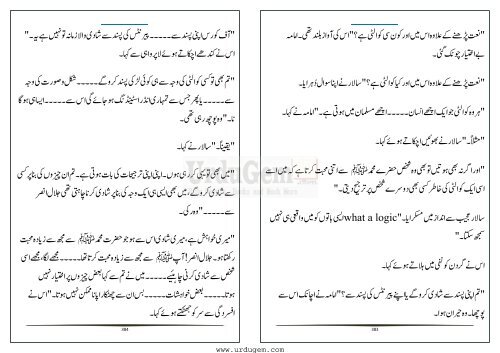 "نعت پڑھنے کے علاوہ اس میں اور کون سی کوالٹی ہے؟" اس کی آواز بلند تھی۔ امامہ
بے اختیار چونک گئی۔
"نعت پڑھنے کے علاوہ اس میں اور کیا کوالٹی ہے؟" سالار نے اپنا سوال دہرایا۔
"ہر وہ کوالٹی جو ایک اچھے انسان۔۔۔۔۔ اچھے مسلمان میں ہوتی ہے۔" امامہ نے کہا۔
"مثلاً۔" سالار نے بھنویں اچکاتے ہوئے کہا۔
"اور اگر نہ بھی ہوتیں تو بھی وہ شخص حضرت محمد ﷺ سے اتنی محبت کرتا ہے کہ میں اسے
اسی ایک کوالٹی کی خاطر کسی بھی دوسرے شخص پر ترجیح دیتی۔"
سالار عجیب سے انداز میں مسکرایا۔ "what a logic ایسی باتوں کو میں واقعی ہی نہیں
سمجھ سکتا۔"
اس نے گردن کو نفی میں ہلاتے ہوئے کہا۔
"تم اپنی پسند سے شادی کرو گے یا اپنے پیرنٹس کی پسند سے؟" امامہ نے اچانک اس سے
پوچھا۔ وہ حیران ہوا۔
383
"آف کورس اپنی پسند سے۔۔۔۔۔ پیرنٹس کی پسند سے شادی والا زمانہ تو نہیں ہے یہ۔"
اس نے کندھے اچکاتے ہوئے لاپرواہی سے کہا۔
"تم بھی تو کسی کوالٹی کی وجہ سے ہی کوئی لڑکی پسند کرو گے۔۔۔۔۔ شکل و صورت کی وجہ
سے۔۔۔۔۔ یا پھر جس سے تمہاری انڈر اسٹینڈنگ ہو جائے گی اس سے۔۔۔۔۔ ایسا ہی ہو گا
نا۔" وہ پوچھ رہی تھی۔
"یقیناً۔" سالار نے کہا۔
"میں بھی تو یہی کر رہی ہوں۔ اپنی اپنی ترجیحات کی بات ہوتی ہے۔ تم ان چیزوں کی بنا پر کسی
سے شادی کرو گے، میں بھی ایسی ہی ایک وجہ کی بنا پر شادی کرنا چاہتی تھی جلال انصر
سے۔۔۔۔۔" وہ رکی۔
"میری خواہش ہے، میری شادی اس سے ہو جو حضرت محمد ﷺ سے مجھ سے زیادہ محبت
رکھتا ہو۔ جلال انصر! آپ ﷺ سے مجھ سے زیادہ محبت کرتا تھا۔۔۔۔۔ مجھے لگا، مجھے اسی
شخص سے شادی کرنی چاہیے۔۔۔۔۔ میں نے تم سے کہا بعض چیزوں پر اختیار نہیں
ہوتا۔۔۔۔۔ بعض خواہشات۔۔۔۔۔ بس ان سے چھٹکارا پانا ممکن نہیں ہوتا۔" اس نے
افسردگی سے سر کو جھٹکتے ہوئے کہا۔
384
UrduGem.com
www.urdugem.com